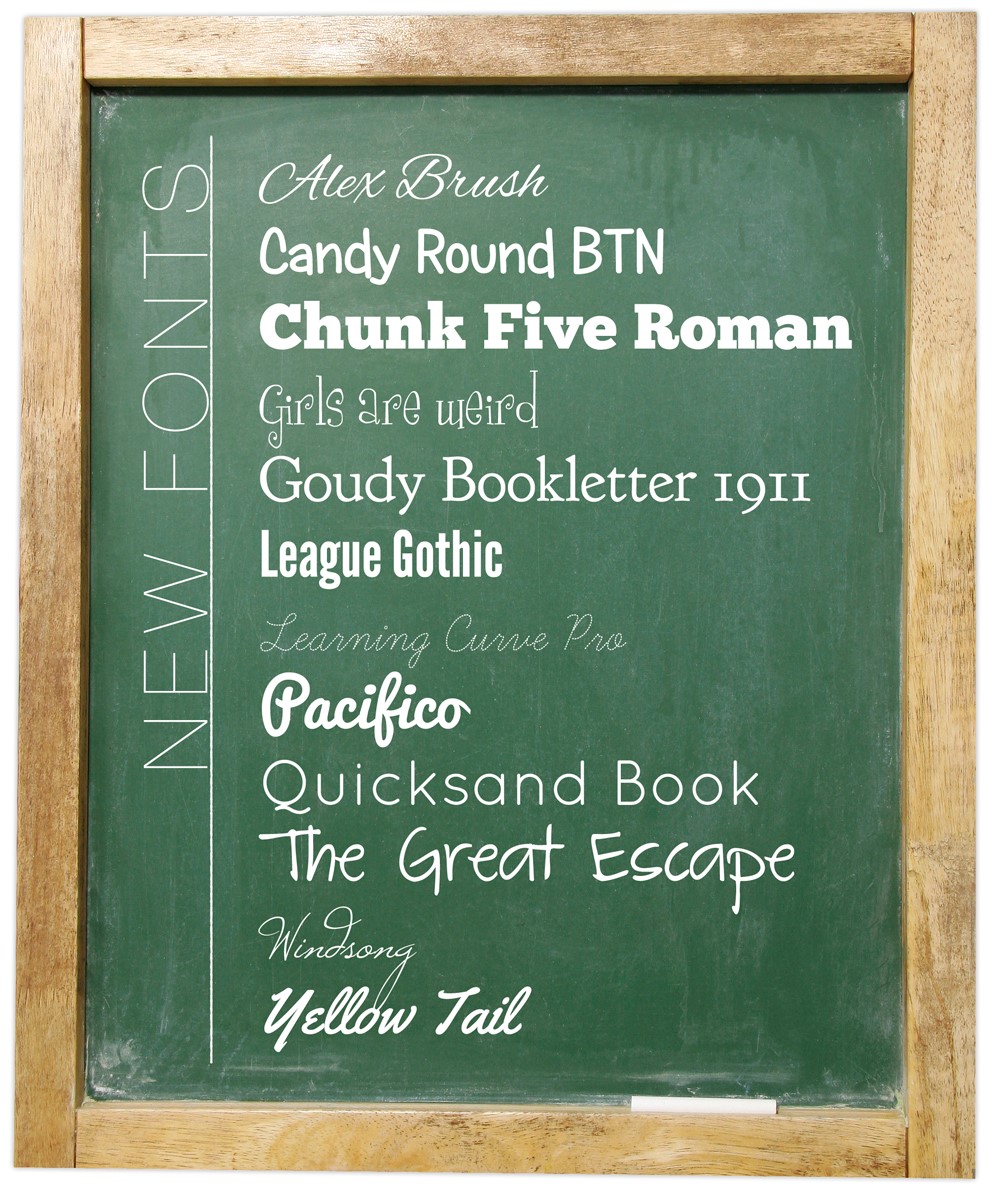 NEW FONTS
Alex Brush
Candy Round BTN
Chunk Five Roman
Girls are weird
Goudy Bookletter 1911
League Gothic
Learning Curve Pro
Pacifico
Quicksand Book
The Great Escape
Windsong
Yellow Tail